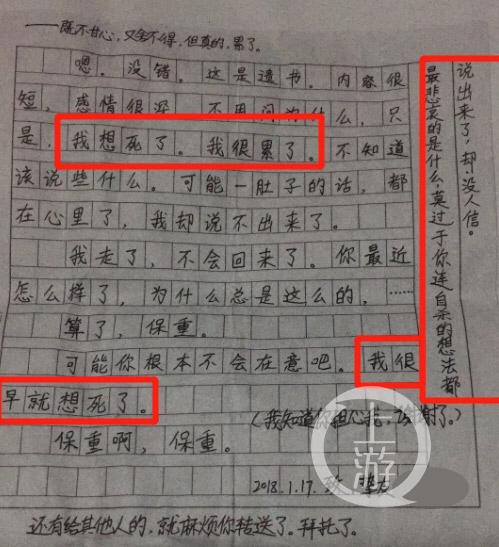 ——既不甘心，又舍不得，但真的，累了。
嗯。没错。这是遗书。内容很
短，感情很深，不用问为什么，只
是，我想死了。我很累了。不知道
该说些什么。可能一肚子的话，都
在心里了，我却说不出来了。
我走了，不会回来了。你最近
怎么样了，为什么总是这么的，……
算了，保重。
可能你根本不会在意吧。我很
早就想死了。
（我知道你担心我，谢谢了。）
保重啊，保重。
2018.1.17.
还有给其他人的，就麻烦你转送了。拜托了。
最悲哀的是什么，莫过于你连自杀的想法都
说出来了，却没人信。
上游